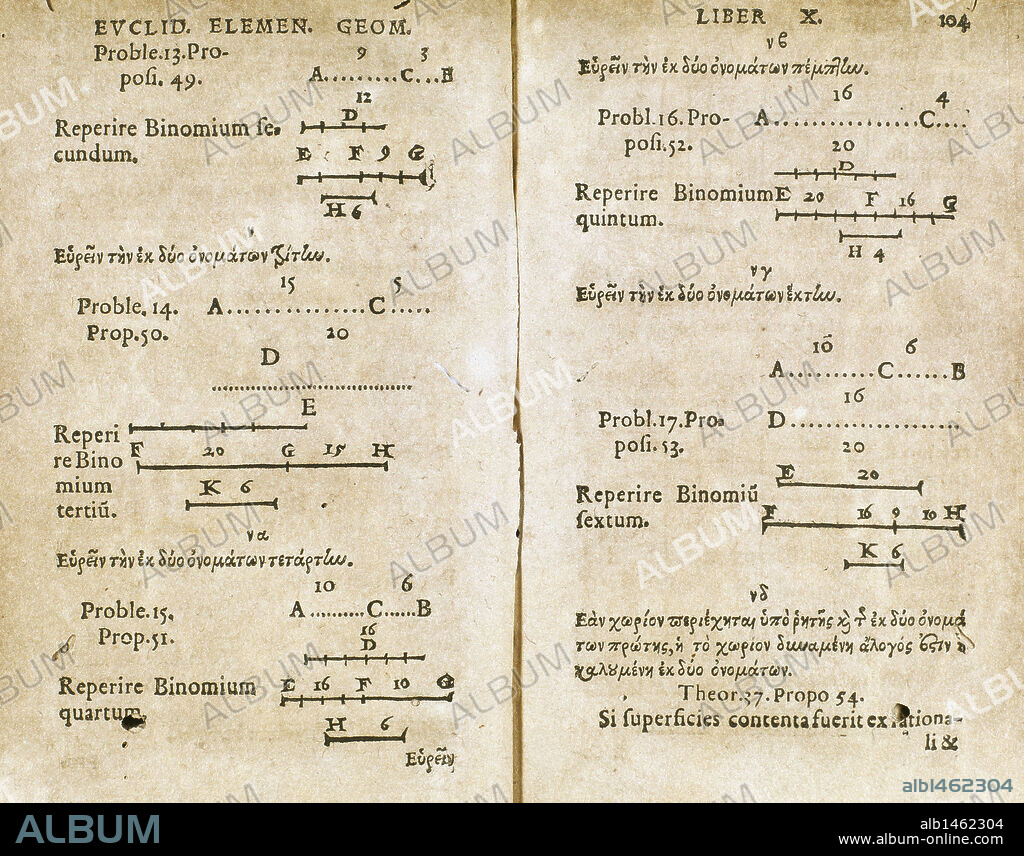 EVCLID. ELEMEN. GEOM.
Proble.13.Pro-
posi. 49.
9 3
A.........C...B
12
D
Reperire Binomium se-
cundum.
E F 9 G
H 6
ν
Εὑρεῖν τὴν ἐκ δύο ὀνομάτων τρίτην.
15 5
Proble. 14.
Prop.50.
A...............C.....
20
D
E
Reperi
re Bino
mium
tertiũ.
F 20 G 15 H
K 6
να
Εὑρεῖν τὴν ἐκ δύο ὀνομάτων τετάρτην.
10 6
Proble.15.
Prop.51.
A..........C......B
16
D
Reperire Binomium
quartum.
E 16 F 10 G
H 6
Εὑρεῖν
LIBER X. 104
νβ
Εὑρεῖν τὴν ἐκ δύο ὀνομάτων πέμπτην.
16 4
Probl.16.Pro-
posi.52.
A................C....
20
D
Reperire Binomium
quintum.
E 20 F 16 G
H 4
νγ
Εὑρεῖν τὴν ἐκ δύο ὀνομάτων ἕκτην.
10 6
A..........C......B
16
Probl.17.Pro-
posi.53.
D................
20
E 20
Reperire Binomiũ
sextum.
F 16 9 10 H
K 6
νδ
Εὰν χωρίον περιέχηται ὑπὸ ῥητῆς κ τ ἐκ δύο ὀνομά
των πρώτης, ἡ τὸ χωρίον δυναμένη ἄλογός ἐστιν ἡ
καλουμένη ἐκ δύο ὀνομάτων.
Theor.37. Propo 54.
Si superficies contenta fuerit ex rationa-
li &
ALBUM
alb1462304
alb1462304
www.album-online.com